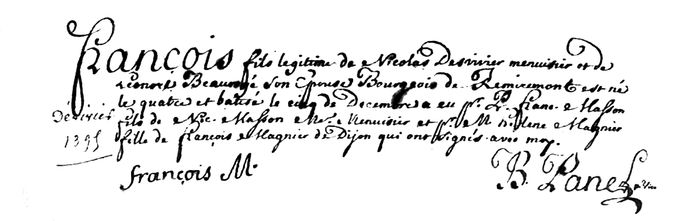 François fils legitime de Nicolas Desrivier menuisier et de
Leonore Beauregé son Epouse Bourgeois de Remiremont est né
le quatre et batisé le cinq de Decembre a eu pr. P. Franc. Masson
fils de Nic. Masson Me. Menuisier et pr. M. Helene Magnier
fille de françois Magnier de Dijon qui ont signés avec moy.
françois M.
B. Panel
1395